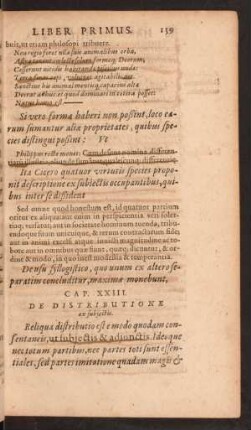 LIBER PRIMUS. 139
buit, ut etiam philosophi tribuere.
Neu regio foret ulla suis animalibus orba,
Astra tenent cœleste solum, formæque Deorum,
Cesserunt nitidis habitandæ piscibus undæ:
Terra feras cepit, volucres agitabilis aër.
Sanctius his animal mentisque capacius altæ
Deerat adhuc, et quod dominari in cætera posset:
Natus homo est
Si vero formæ haberi non possint, loco earum
sumantur aliæ proprietates, quibus species
distingui possint: Ut
Philippic
Ita Cicero quatuor virtutis species proponit
descriptione ex subjectis occupantibus, quibus
inter se distident
Sed omne quod honestum est, id quatuor partium
oritur ex aliqua: aut enim in perspicientia veri solertiaque
versatur, aut in societate hominum tuenda, tribuendoque
suum unicuique, & rerum contractarum fide:
aut in animi excelsi atque invicti magnitudine ac robore:
aut in omnium, quæ fiunt, quæque dicuntur, & ordine
& modo, in quo inest modestia & temperantia.
De usu syllogistico, quo unum ex altero separatim
concluditur, maxime monebunt,
CAP. XXIII.
DE DISTRIBUTIONE
ex subjectis.
Reliqua distributio est e modo quodam consentaneis,
ut subjectis & adjunctis. Ideoque
nec totum partibus, nec partes toti sunt essentiales,
sed partes imitatione quadam magis &